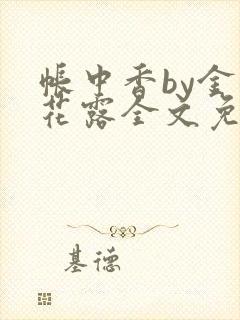 帐中香by金
花露全文免
基德